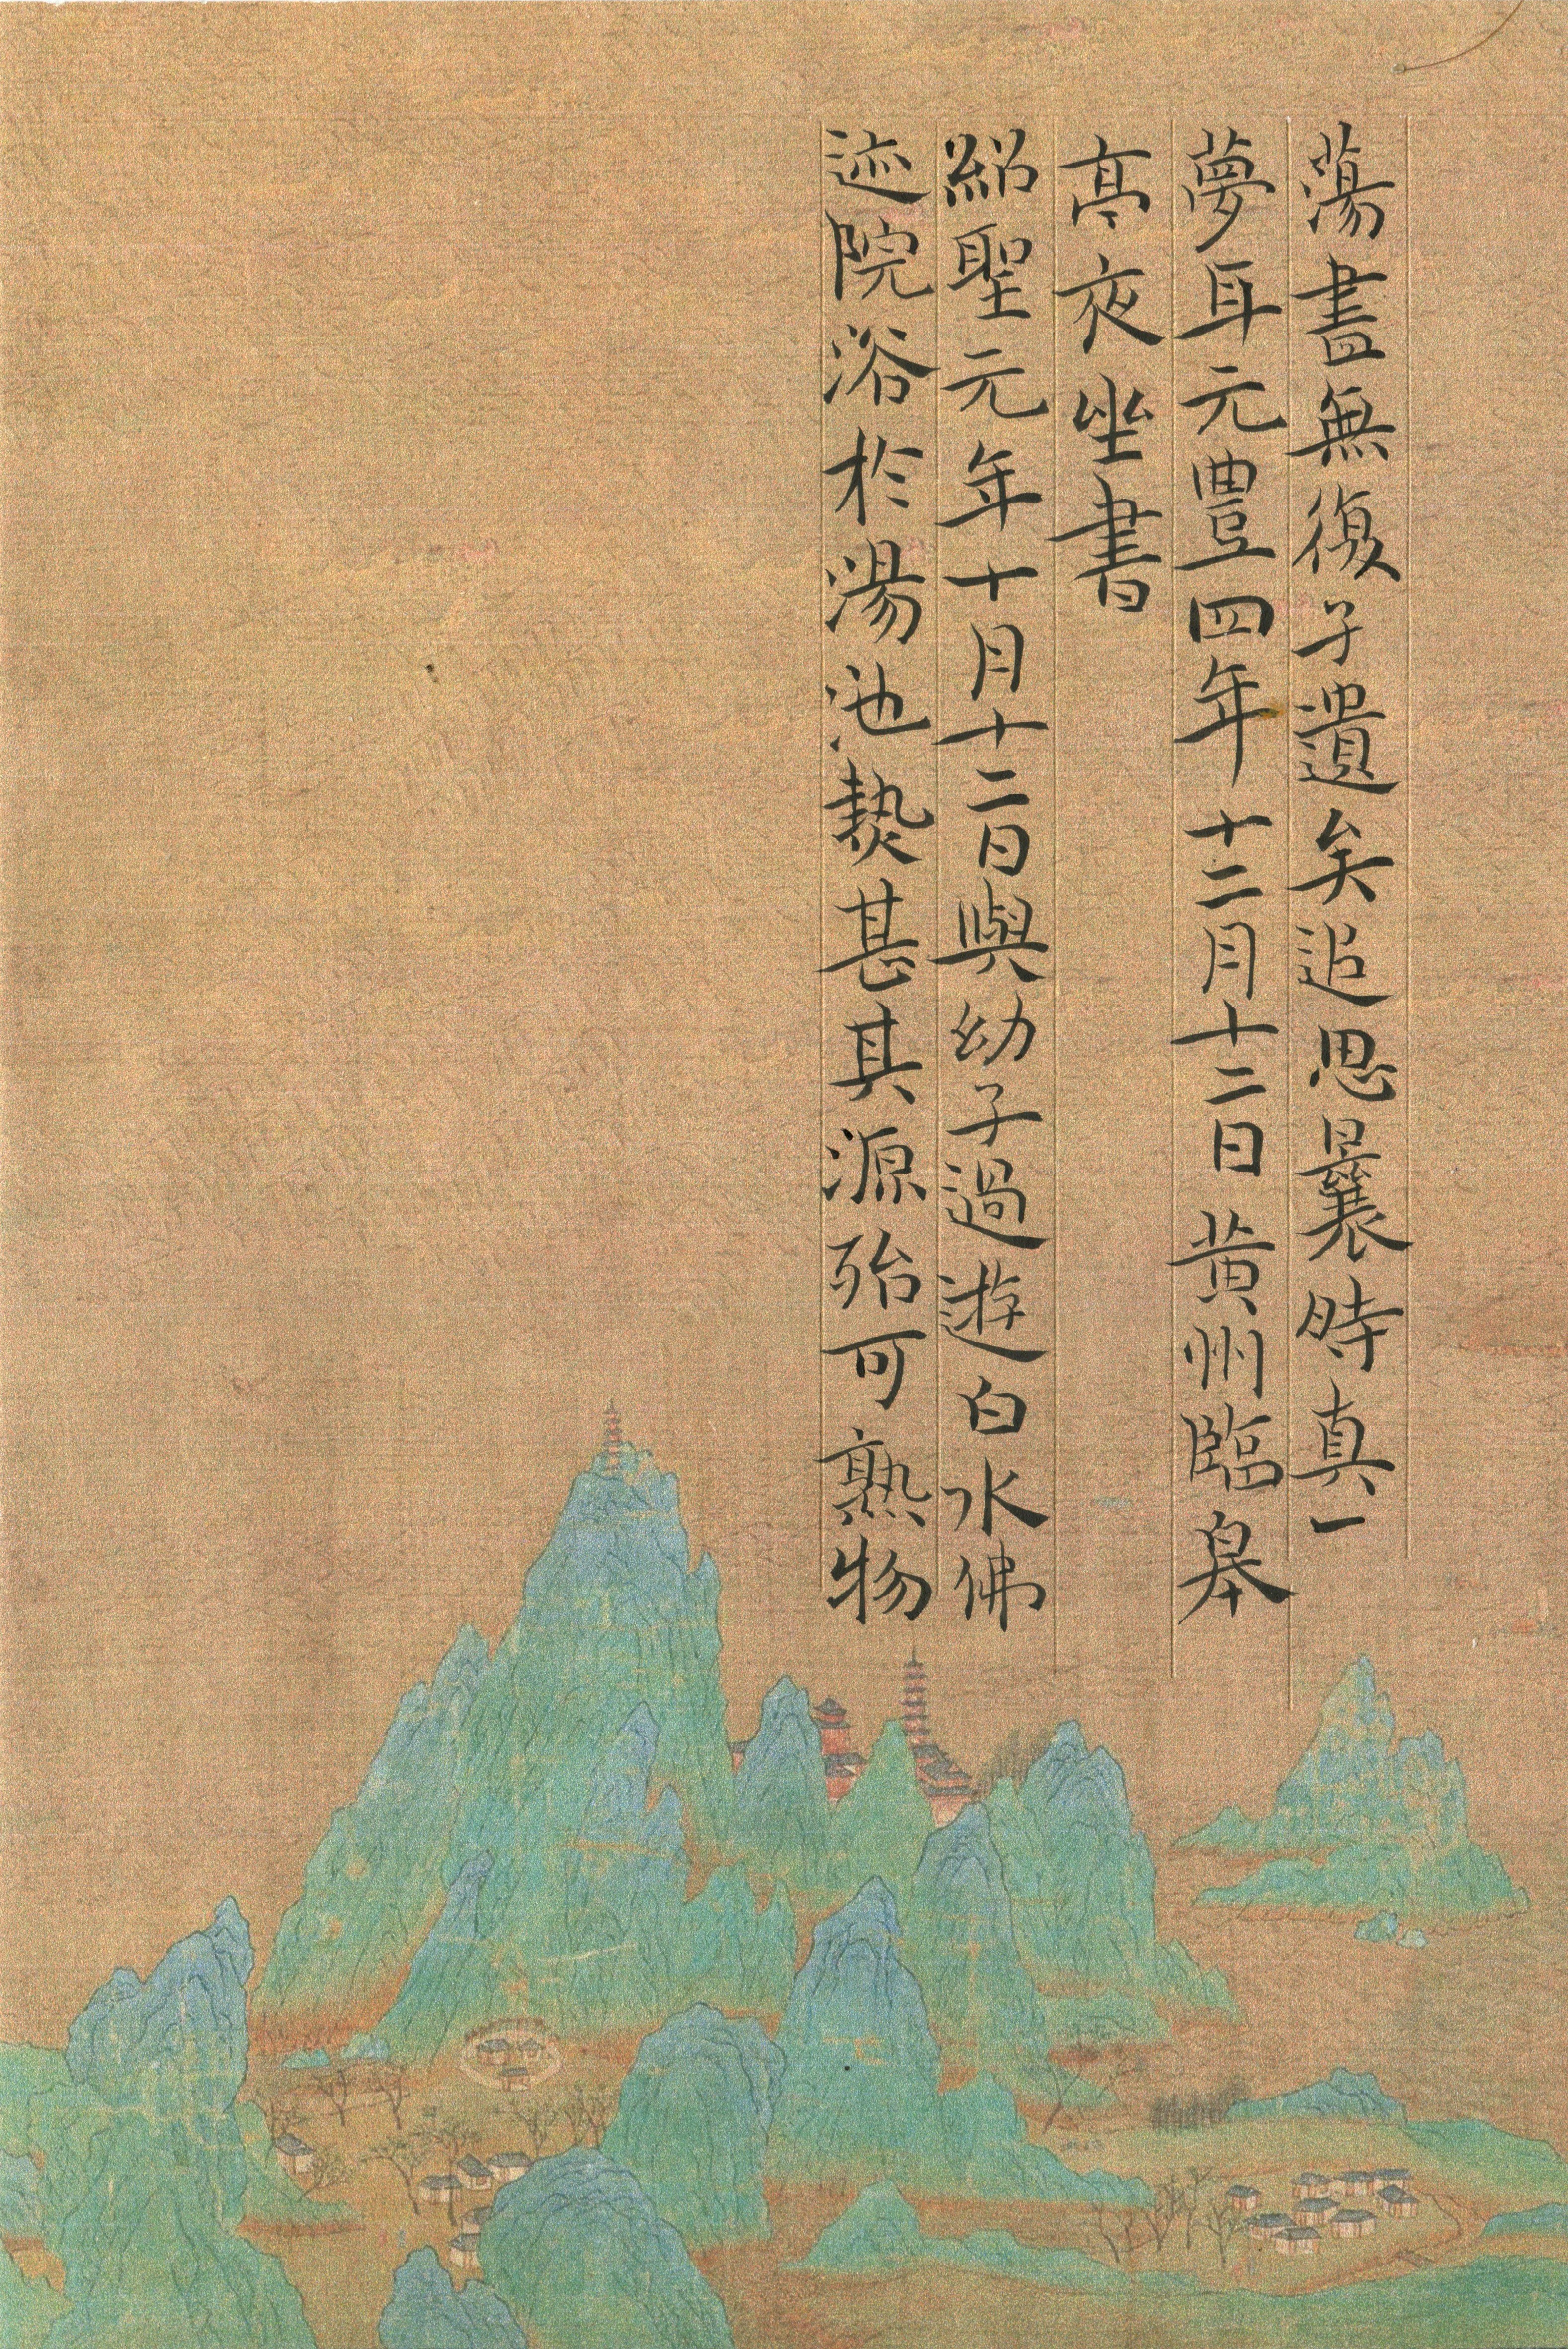 蕩盡無復孑遺矣追思曩時真一
夢耳元豊四年十二月十二日黄州臨皋
亭夜坐書
紹聖元年十月十二日與幼子過遊白水佛
迹院浴於湯池熱甚其源殆可熟物